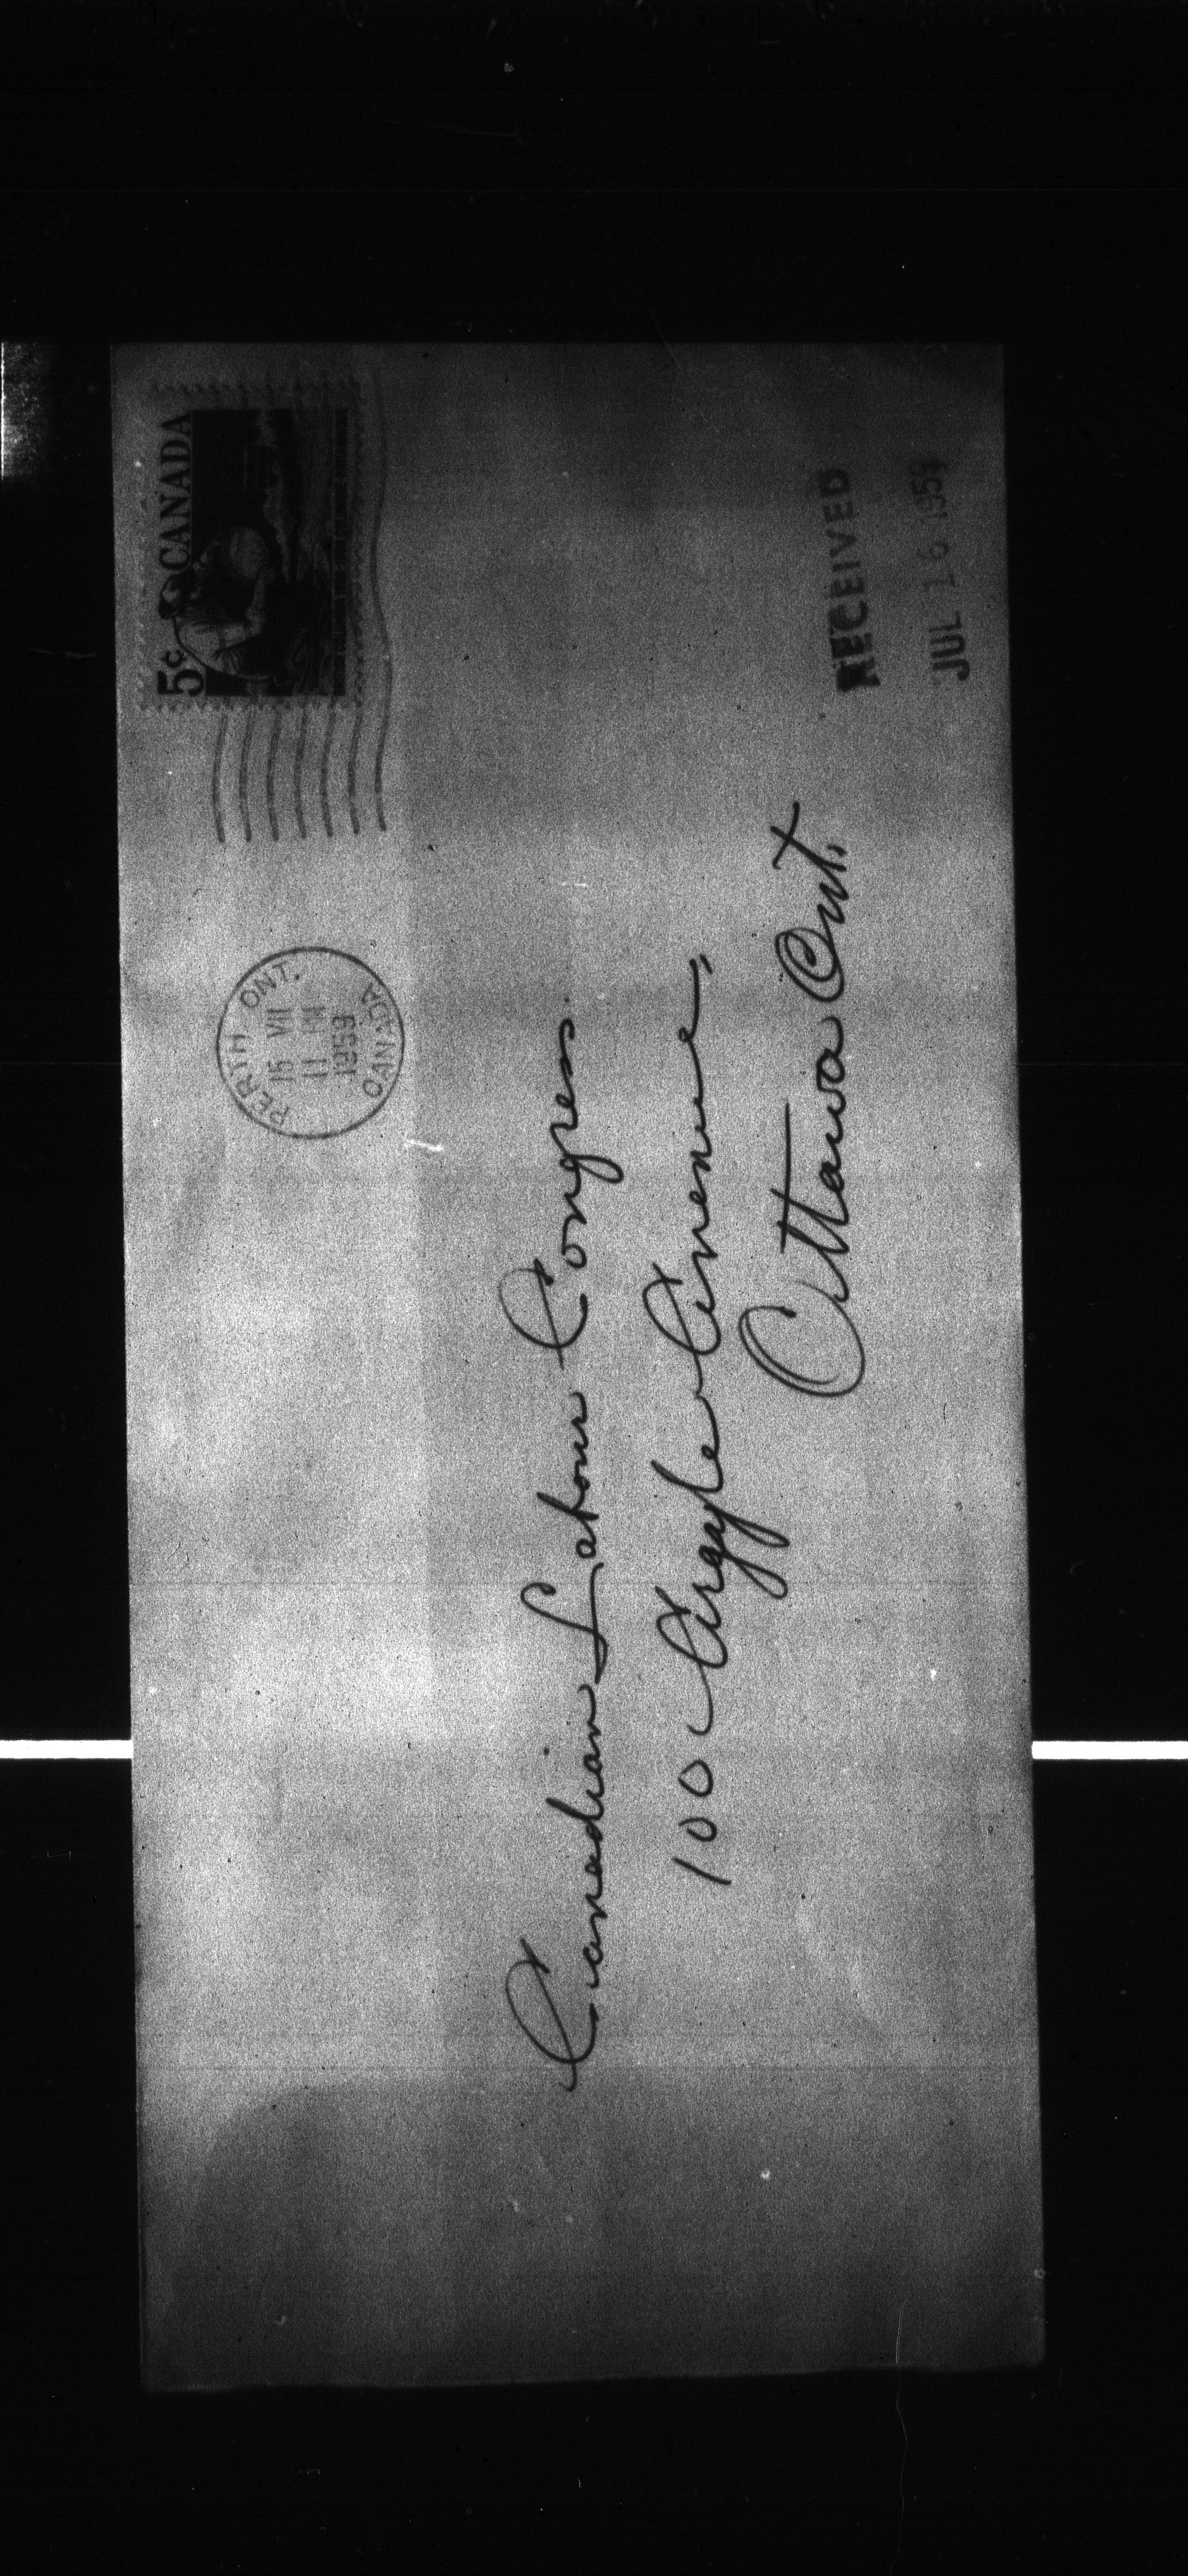 5¢ CANADA
PERTH ONT.
15 VII
11 AM
1959
CANADA
Canadian Labour Congress
100 Argyle Avenue,
Ottawa Ont.
RECEIVED
JUL 16 1959